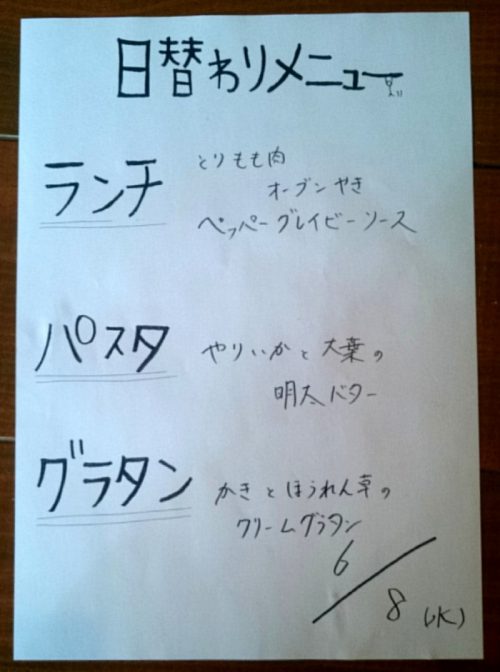 日替わりメニュー
ランチ
とりもも肉
オーブンやき
ペッパーグレイビーソース
パスタ
やりいかと大葉の
明太バター
グラタン
かきとほうれん草の
クリームグラタン
6/8 (水)